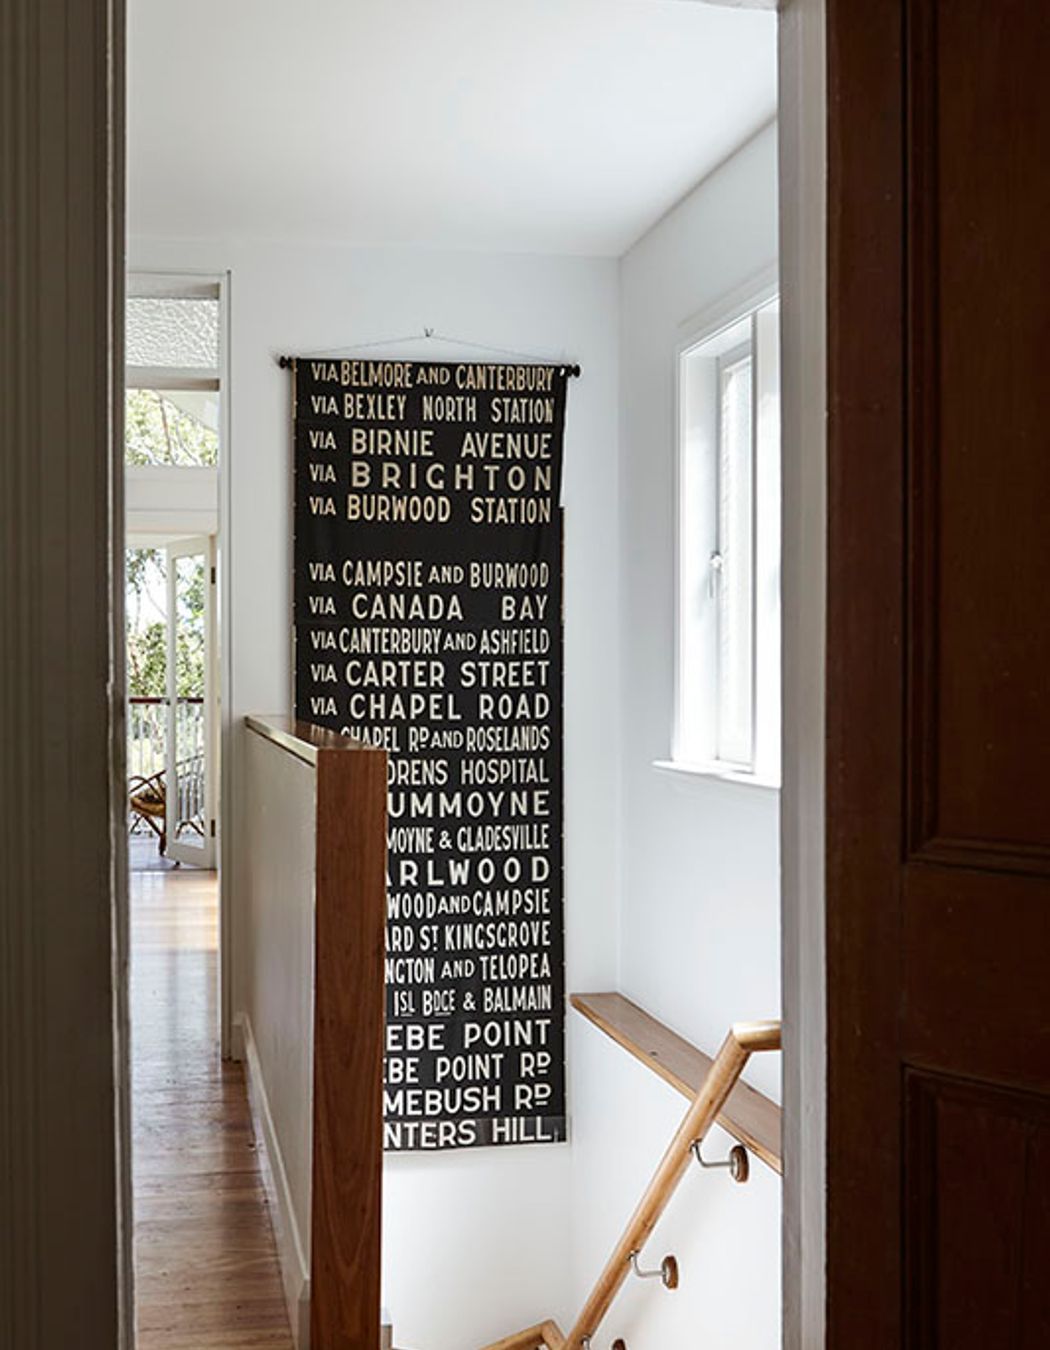 VIA BELMORE AND CANTERBURY
VIA BEXLEY NORTH STATION
VIA BIRNIE AVENUE
VIA BRIGHTON
VIA BURWOOD STATION
VIA CAMPSIE AND BURWOOD
VIA CANADA BAY
VIA CANTERBURY AND ASHFIELD
VIA CARTER STREET
VIA CHAPEL ROAD
VIA CHAPEL RD AND ROSELANDS
DRENS HOSPITAL
UMMOYNE
MOYNE & GLADESVILLE
ARLWOOD
WOOD AND CAMPSIE
ARD ST KINGSGROVE
NGTON AND TELOPEA
ISL BDGE & BALMAIN
EBE POINT
EBE POINT RD
MEBUSH RD
NTERS HILL